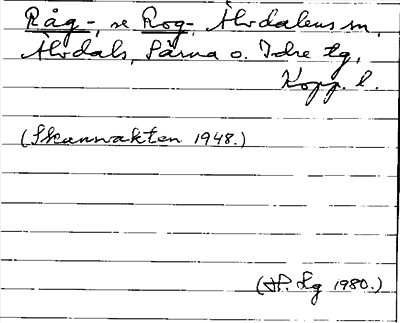 Råg-, se Rog-, Älvdalens sn,
Älvdals, Särna o. Idre tg,
Kopp. l.
(Skannakten 1948.)
(H. Lg 1980.)